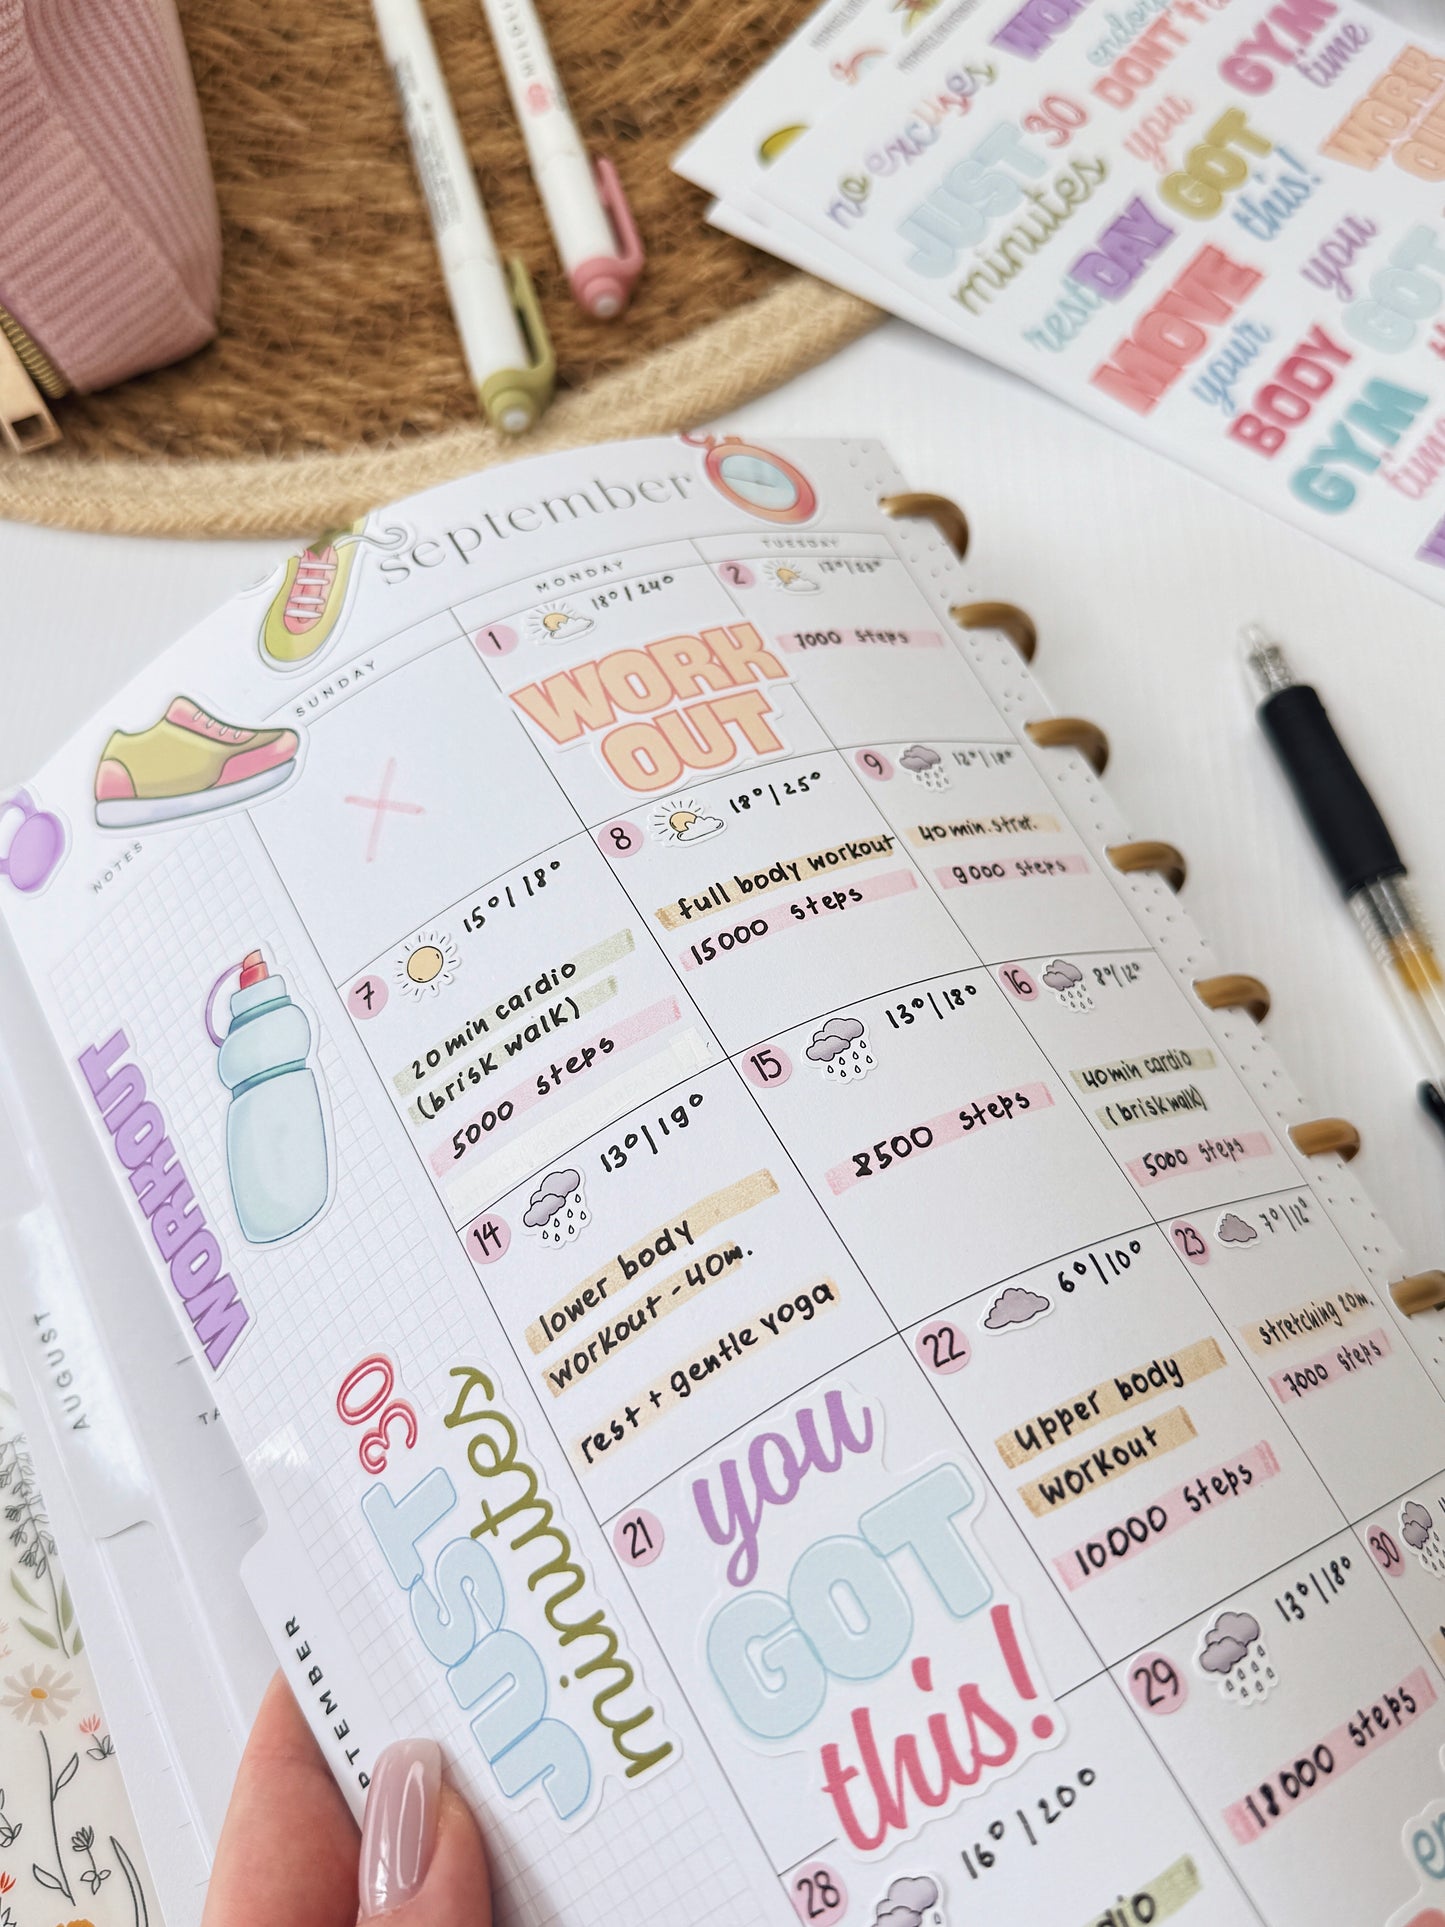 no excuses
JUST 30
minutes
DON'T
you
GOT
this!
GYM
time
WORK
OUT
rest DAY
MOVE
your
BODY
you
GOT
GYM
time
september
SUNDAY
MONDAY
TUESDAY
NOTES
1
18°/24°
WORK
OUT
2
7000 steps
7
15°/18°
20 min cardio
(brisk walk)
5000 steps
8
18°/25°
full body workout
15000 steps
9
12°/18°
40 min. stret.
9000 steps
14
13°/19°
lower body
workout - 40m.
rest + gentle yoga
15
13°/18°
8500 steps
16
8°/12°
40min cardio
(brisk walk)
5000 steps
21
you
GOT
this!
22
6°/10°
upper body
workout
10000 steps
23
7°/12°
stretching 20m.
7000 steps
28
16°/20°
29
13°/18°
18000 steps
30
WORKOUT
JUST 30
minutes
AUGUST
PTEMBER